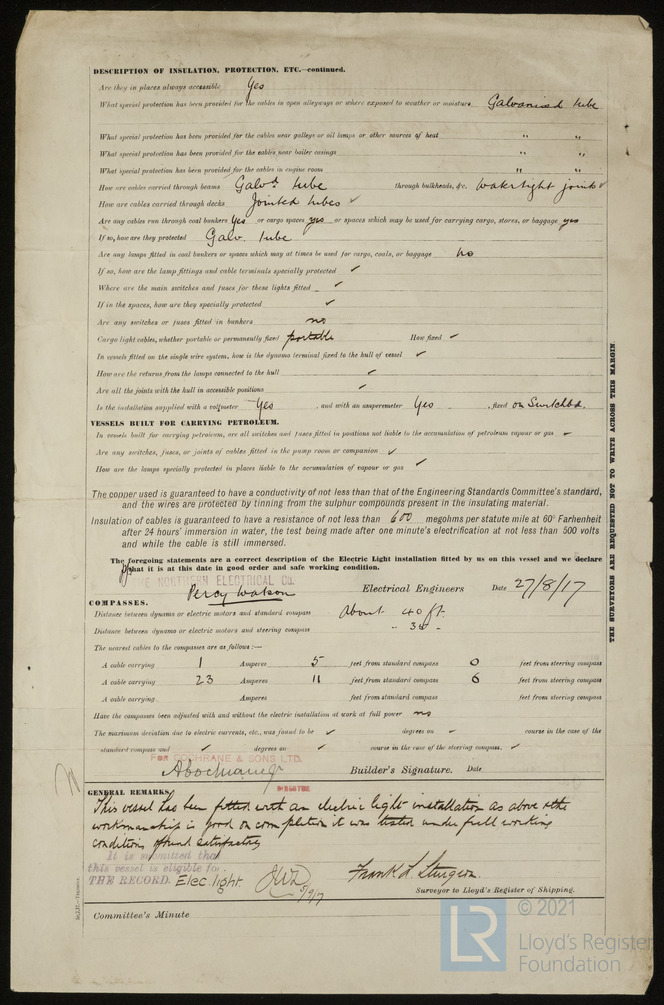 DESCRIPTION OF INSULATION, PROTECTION, ETC.—continued.
Are they in places always accessible Yes
What special protection has been provided for the cables in open alleyways or where exposed to weather or moisture Galvanised tube
What special protection has been provided for the cables near galleys or oil lamps or other sources of heat " "
What special protection has been provided for the cables near boiler casings " "
What special protection has been provided for the cables in engine room " "
How are cables carried through beams Galvd. tube through bulkheads, &c. Watertight joints ✓
How are cables carried through decks Jointed tubes ✓
Are any cables run through coal bunkers yes or cargo spaces yes or spaces which may be used for carrying cargo, stores, or baggage yes
If so, how are they protected Galv. tube
Are any lamps fitted in coal bunkers or spaces which may at times be used for cargo, coals, or baggage no
If so, how are the lamp fittings and cable terminals specially protected ✓
Where are the main switches and fuses for these lights fitted ✓
If in the spaces, how are they specially protected ✓
Are any switches or fuses fitted in bunkers no
Cargo light cables, whether portable or permanently fixed portable How fixed ✓
In vessels fitted on the single wire system, how is the dynamo terminal fixed to the hull of vessel ✓
How are the returns from the lamps connected to the hull ✓
Are all the joints with the hull in accessible positions ✓
Is the installation supplied with a voltmeter Yes , and with an amperemeter Yes , fixed on Switchbd.
VESSELS BUILT FOR CARRYING PETROLEUM.
In vessels built for carrying petroleum, are all switches and fuses fitted in positions not liable to the accumulation of petroleum vapour or gas ✓
Are any switches, fuses, or joints of cables fitted in the pump room or companion ✓
How are the lamps specially protected in places liable to the accumulation of vapour or gas ✓
The copper used is guaranteed to have a conductivity of not less than that of the Engineering Standards Committee's standard,
and the wires are protected by tinning from the sulphur compounds present in the insulating material.
Insulation of cables is guaranteed to have a resistance of not less than 600 megohms per statute mile at 60° Farhenheit
after 24 hours' immersion in water, the test being made after one minute's electrification at not less than 500 volts
and while the cable is still immersed.
The foregoing statements are a correct description of the Electric Light installation fitted by us on this vessel and we declare
that it is at this date in good order and safe working condition.
THE NORTHERN ELECTRICAL CO.
Percy Watson Electrical Engineers Date 27/8/17
COMPASSES.
Distance between dynamo or electric motors and standard compass About 40 ft.
Distance between dynamo or electric motors and steering compass " 35 "
The nearest cables to the compasses are as follows:—
A cable carrying 1 Amperes 5 feet from standard compass 0 feet from steering compass
A cable carrying 23 Amperes 11 feet from standard compass 6 feet from steering compass
A cable carrying Amperes feet from standard compass feet from steering compass
Have the compasses been adjusted with and without the electric installation at work at full power no
The maximum deviation due to electric currents, etc., was found to be ✓ degrees on ✓ course in the case of the
standard compass and ✓ degrees on ✓ course in the case of the steering compass. ✓
FOR COCHRANE & SONS LTD.
Builder's Signature. Date
DIRECTOR
GENERAL REMARKS.
This vessel has been fitted with an electric light installation as above & the
workmanship is good on completion it was tested under full working
conditions & found satisfactory
It is submitted that
this vessel is eligible for
THE RECORD. Elec. light. 5/9/17 Frank L Sturgeon.
Surveyor to Lloyd's Register of Shipping.
Committee's Minute
THE SURVEYORS ARE REQUESTED NOT TO WRITE ACROSS THIS MARGIN.
© 2021
LR Lloyd's Register
Foundation